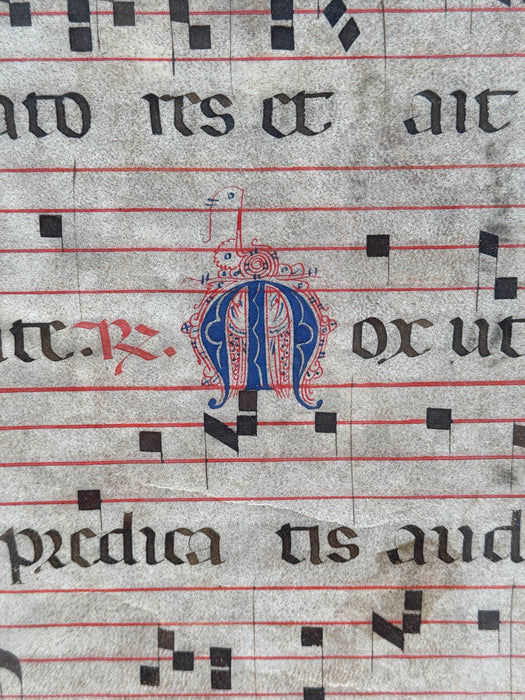 ato res et ait
ite. R. Mox ut
predica tis aud